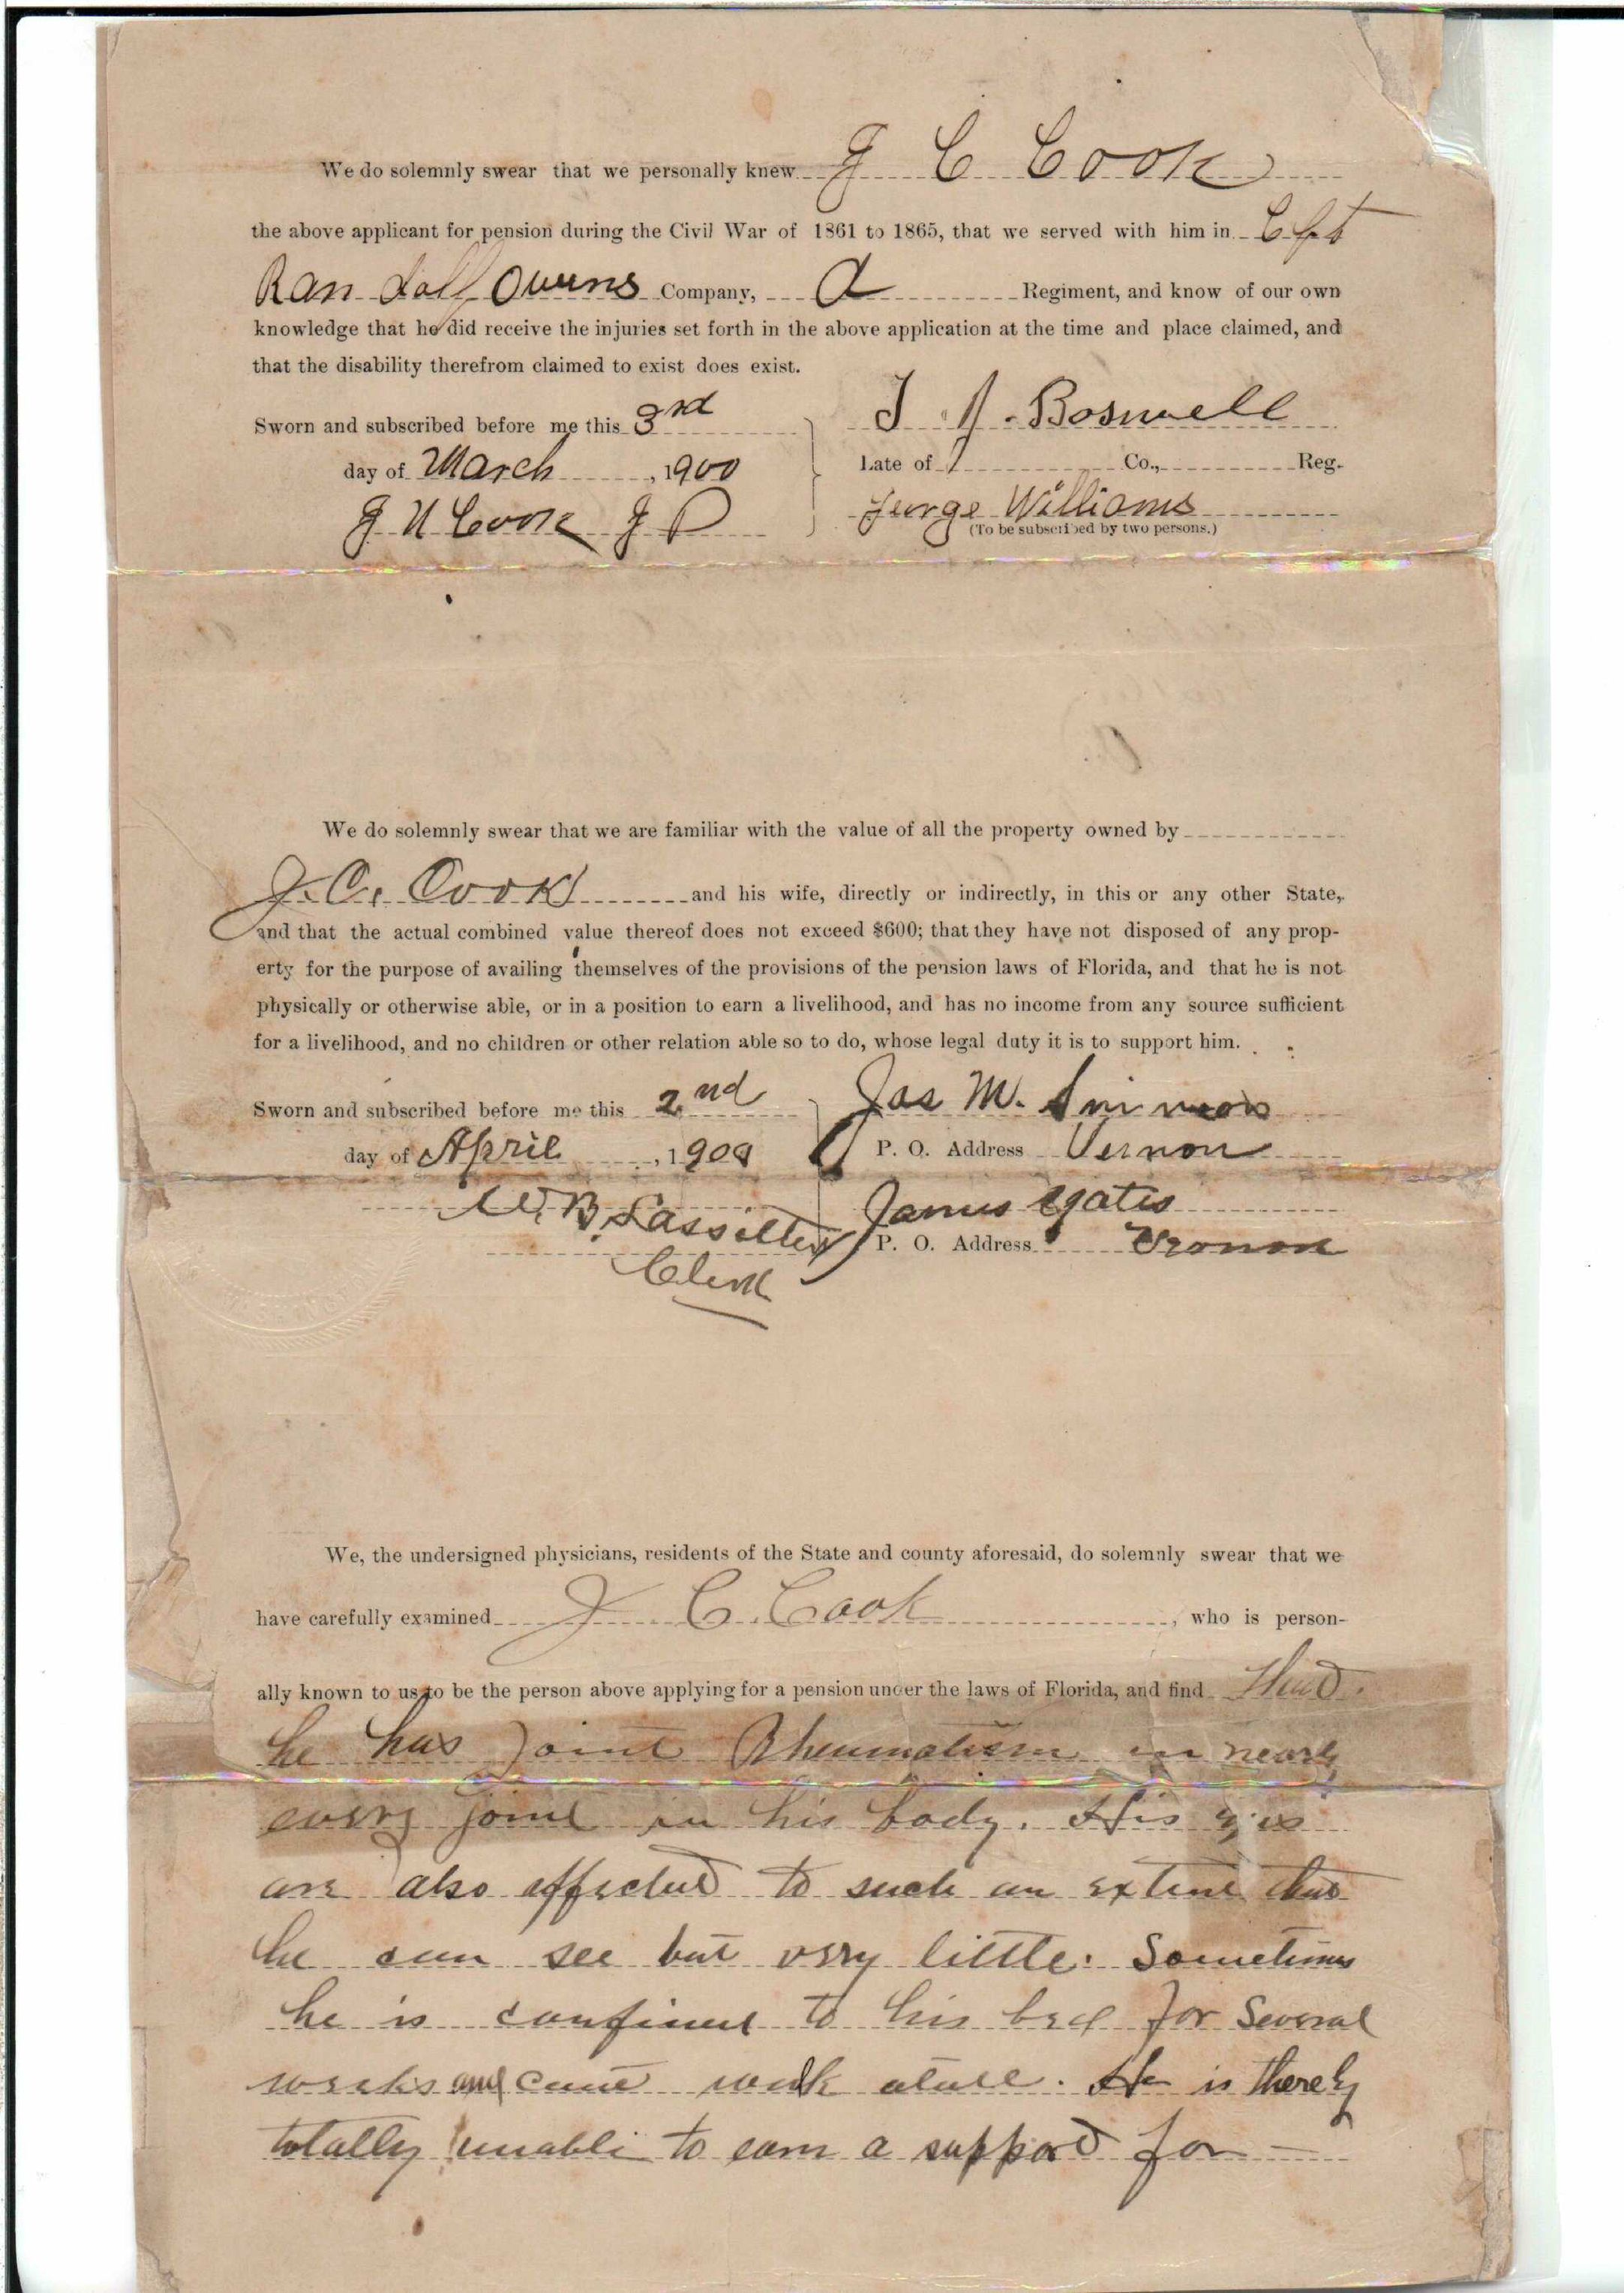 We do solemnly swear that we personally knew J C Cook
the above applicant for pension during the Civil War of 1861 to 1865, that we served with him in Cpt
Randolf Owens Company, A Regiment, and know of our own
knowledge that he did receive the injuries set forth in the above application at the time and place claimed, and
that the disability therefrom claimed to exist does exist.
Sworn and subscribed before me this 3rd
day of March, 1900
J N Cook J P
T. J. Boswell
Late of Co., Reg.
George Williams
(To be subscribed by two persons.)
We do solemnly swear that we are familiar with the value of all the property owned by
J. C. Cook and his wife, directly or indirectly, in this or any other State,
and that the actual combined value thereof does not exceed $600; that they have not disposed of any prop-
erty for the purpose of availing themselves of the provisions of the pension laws of Florida, and that he is not
physically or otherwise able, or in a position to earn a livelihood, and has no income from any source sufficient
for a livelihood, and no children or other relation able so to do, whose legal duty it is to support him.
Sworn and subscribed before me this 2nd
day of April, 1900
W. B. Lassitter
Clerk
Jas M. Simmons
P. O. Address Vernon
James Yates
P. O. Address Vernon
We, the undersigned physicians, residents of the State and county aforesaid, do solemnly swear that we
have carefully examined J C. Cook, who is person-
ally known to us to be the person above applying for a pension under the laws of Florida, and find that
he has joint Rheumatism in nearly
every joint in his body. His eyes
are also affected to such an extent that
he can see but very little. Sometimes
he is confined to his bed for several
weeks and cant walk atall. He is thereby
totally unable to earn a support for —